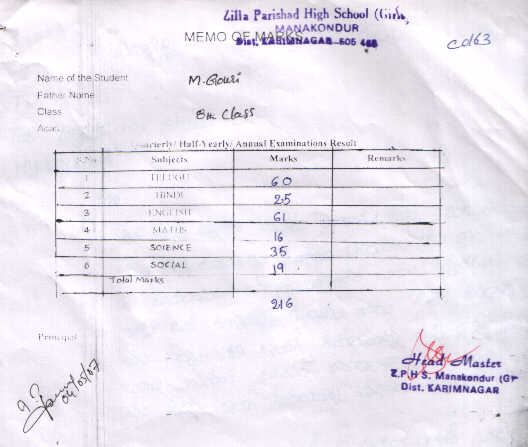 Zilla Parishad High School (Girls)
MANAKONDUR
MEMO OF MARKS
Dist. KARIMNAGAR 505 468
Cd63
Name of the Student M. Gouri
Father Name
Class 8th Class
Acad
Quarterly/ Half-Yearly/ Annual Examinations Result
S.No Subjects Marks Remarks
1 TELUGU 60
2 HINDI 25
3 ENGLISH 61
4 MATHS 16
5 SCIENCE 35
6 SOCIAL 19
Total Marks
216
Principal
Head Master
Z.P.H.S. Manakondur (G
Dist. KARIMNAGAR
04/05/07